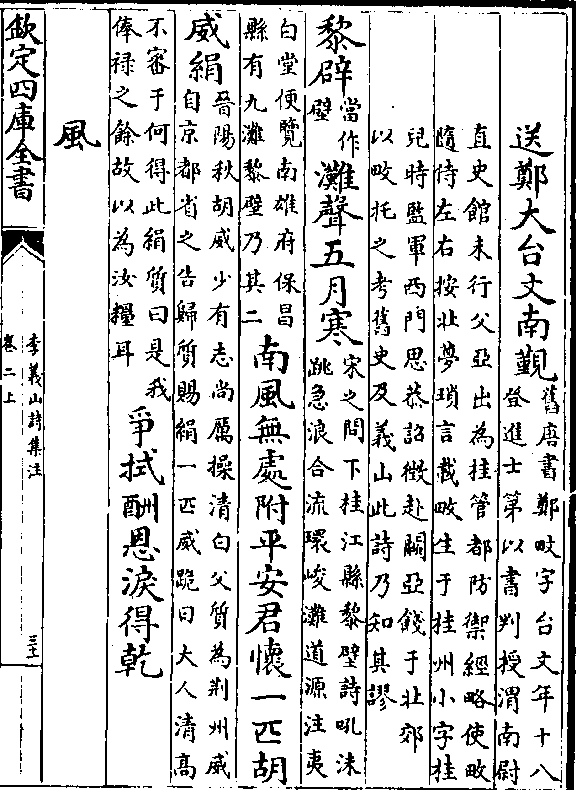 送鄭大台文南覲舊唐書鄭畋字台文年十八登進士第以書判授渭南尉
直史館未行父亞出為桂管都防禦經略使畋
隨侍左右按北夢瑣言載畋生于桂州小字桂
兒時監軍西門思恭詔徵赴闕亞餞于北郊
以畋托之考舊史及義山此詩乃知其謬
黎辟當作壁灘聲五月寒宋之問下桂江縣黎壁詩吼沫跳急浪合流環峻灘道源注夷
白堂便覽南雄府保昌縣有九灘黎壁乃其二南風無處附平安君懷一匹胡
威絹晉陽秋胡威少有志尚厲操清白父質為荆州威自京都省之告歸質賜絹一匹威跪曰大人清高
不審于何得此絹質曰是我俸祿之餘故以為汝糧耳爭拭酬恩淚得乾
風
欽定四庫全書
李義山詩集注
卷二上
三十一